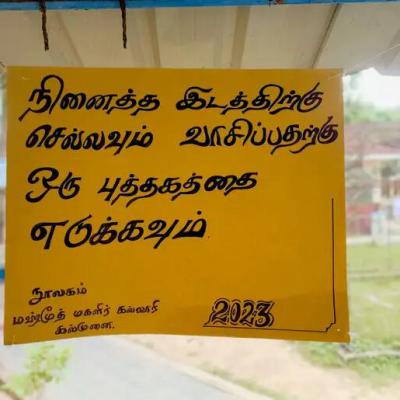 நினைத்த இடத்திற்கு
செல்லவும் வாசிப்பதற்கு
ஒரு புத்தகத்தை
எடுக்கவும்
நூலகம்
மஹ்மூத் மகளிர் கல்லூரி
கல்முனை.
2023